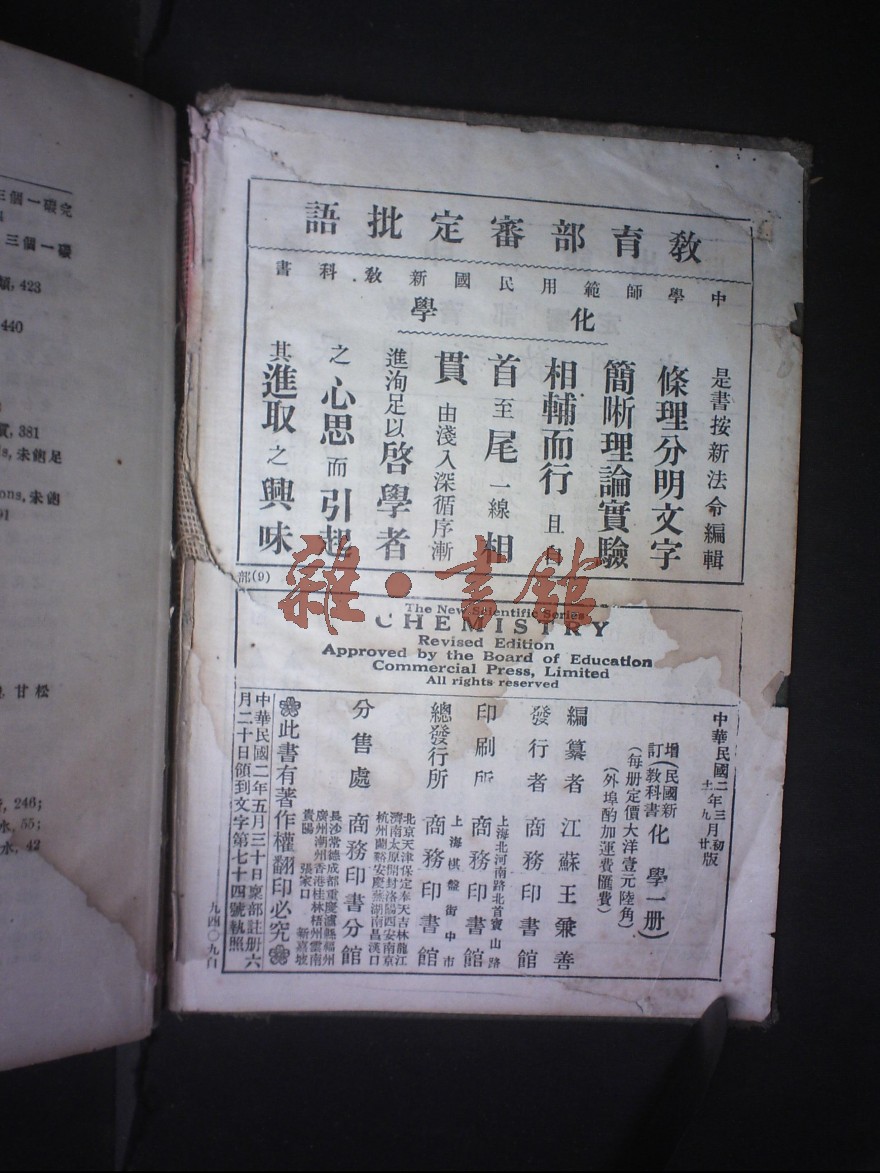 三個一礦完
三個一礦
423
440
381
朱飽足
ons, 朱飽
91
甘松
246;
水, 55;
水, 42
教育部審定批語
中學師範用民國新教科書
化學
是書按新法令編輯
條理分明文字
簡晰理論實驗
相輔而行且自
首至尾一線相
貫由淺入深循序漸
進洵足以啓學者
之心思而引起
其進取之興味
部(9)
雜·書館
The New Scientific Series
CHEMISTRY
Revised Edition
Approved by the Board of Education
Commercial Press, Limited
All rights reserved
中華民國二年三月初版
增訂(民國新教科書化學一册)
(每册定價大洋壹元陸角)
(外埠酌加運費匯費)
編纂者 江蘇王兼善
發行者 商務印書館
上海北河南路北首寶山路
印刷所 商務印書館
上海棋盤街中市
總發行所 商務印書館
北京天津保定奉天吉林龍江
濟南太原開封洛陽西安南京
杭州蘭谿安慶蕪湖南昌漢口
分售處 商務印書分館
長沙常德成都重慶瀘縣福州
廣州潮州香港桂林梧州雲南
貴陽 張家口 新嘉坡
此書有著作權翻印必究
中華民國二年五月三十日稟部註册六
月二十日領到文字第七十四號執照
九四〇九自